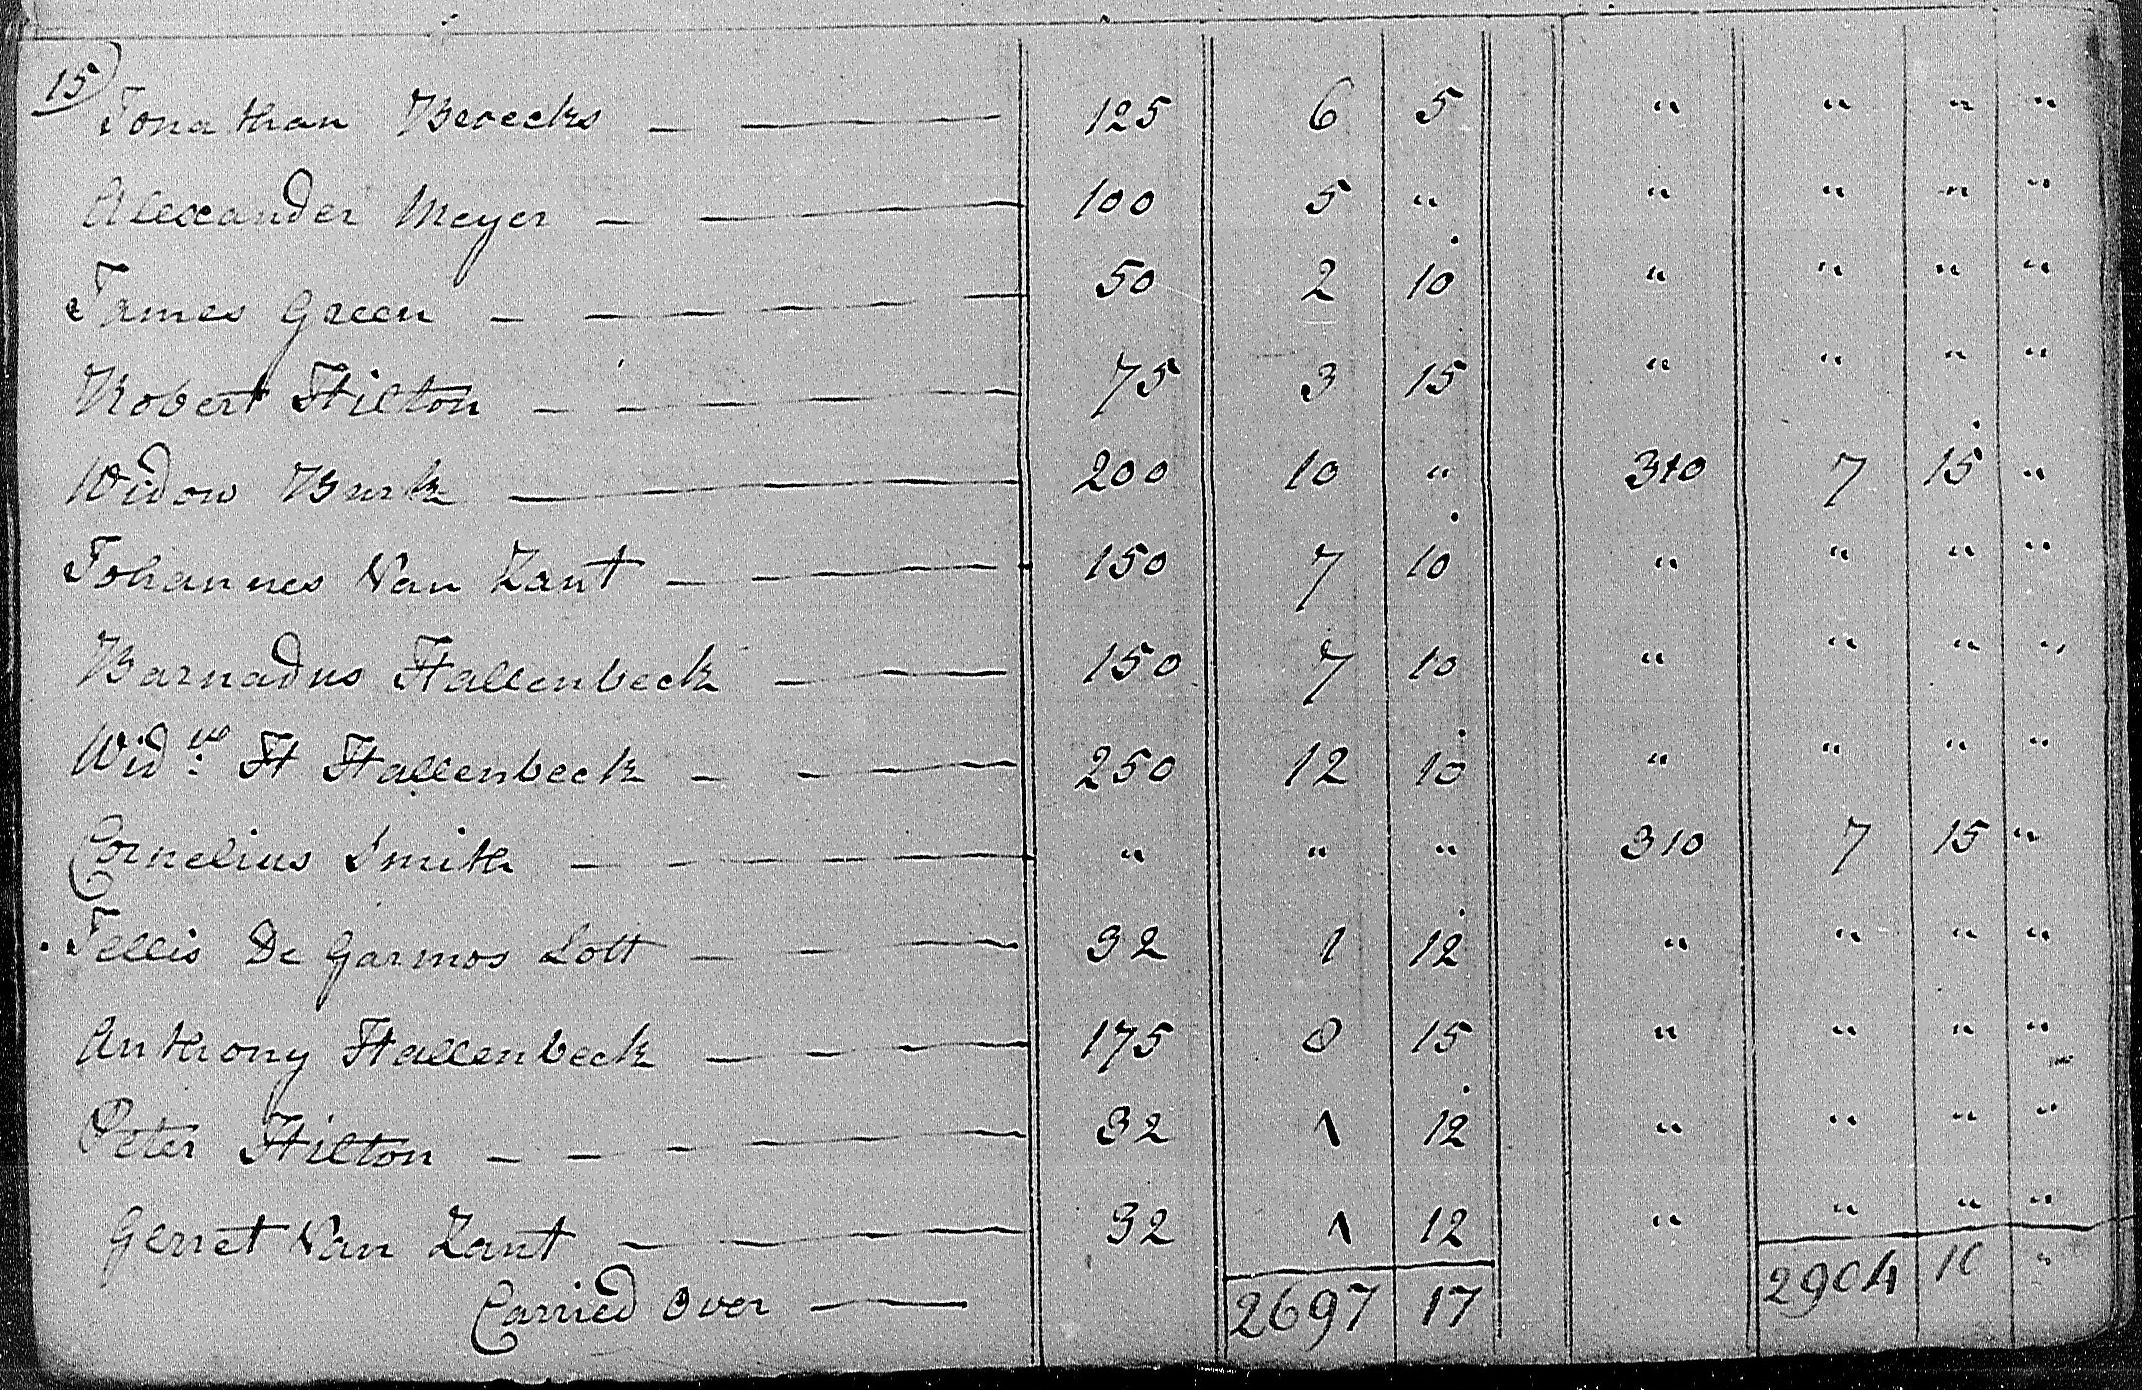 15)
Jonathan Brooks — — 125 6 5 " " " "
Alexander Meyer — — 100 5 " " " " "
James Green — — — — — 50 2 10 " " " "
Robert Hilton — — — — — 75 3 15 " " " "
Widow Burk — — 200 10 " 310 7 15 "
Johannes Van Zant — — — 150 7 10 " " " "
Barnadus Hallenbeck — — — 150 7 10 " " " "
Widw. H Hallenbeck — — — 250 12 10 " " " "
Cornelius Smith — — — " " " 310 7 15 "
Jellis De Garmos Lott — — — 32 1 12 " " " "
Anthony Hallenbeck — — — 175 8 15 " " " "
Peter Hilton — — — — 32 1 12 " " " "
Gerret Van Zant — — — 32 1 12 " " " "
Carried over — 2697 17 2904 10 "